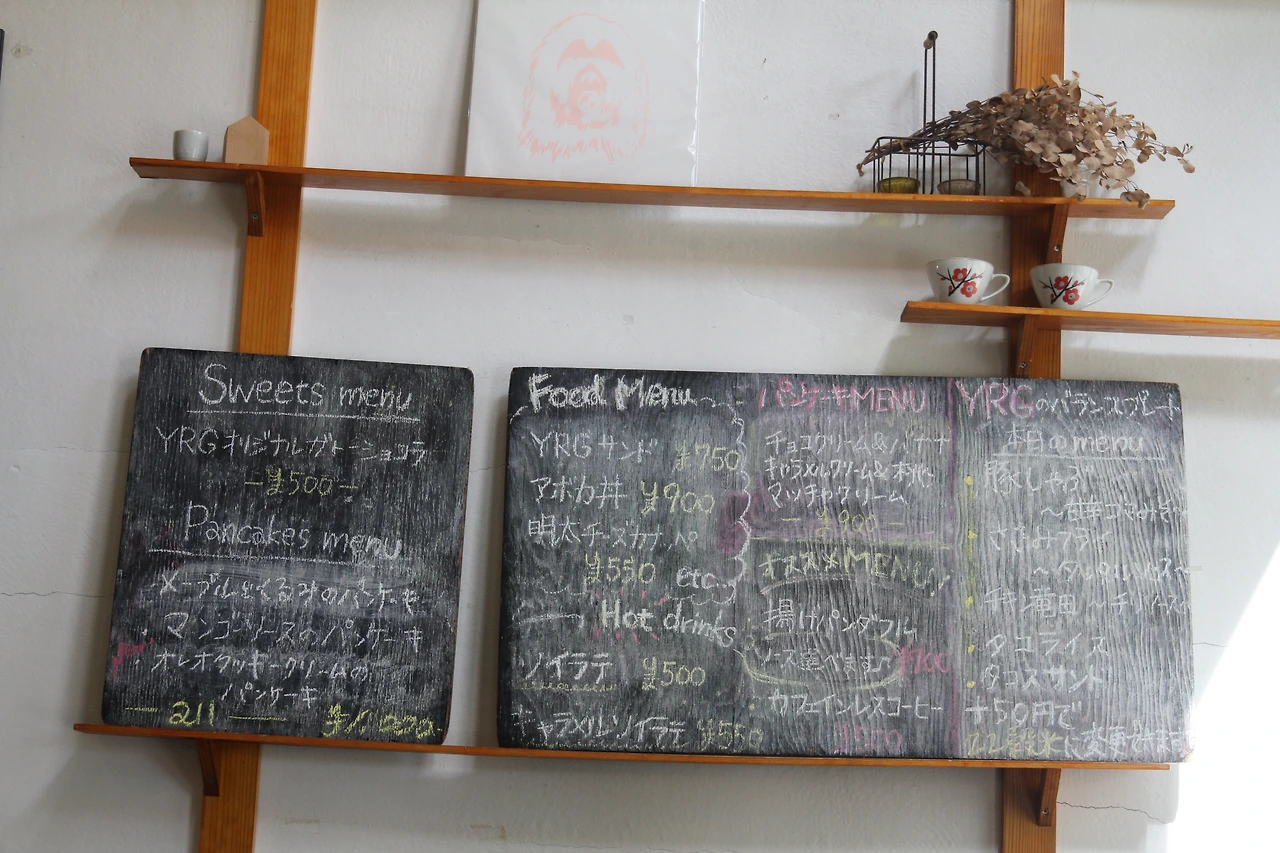 Sweets menu
YRGオリジナルガトーショコラ
-¥500-
Pancakes menu
メープルとくるみのパンケーキ
マンゴーソースのパンケーキ
オレオクッキークリームの
パンケーキ
all
Food Menu
YRGサンド ¥750
アボカ丼 ¥900
明太チーズカナッペ
¥550 etc
Hot drinks
ソイラテ ¥500
キャラメルソイラテ ¥550
パンケーキMENU
チョコクリーム&バナナ
キャラメルクリーム&木の実
マッチャクリーム
-¥900-
オススメMENU
揚げパンダフル
ソース選べます
カフェインレスコーヒー
YRGのバランスプレート
本日のmenu
豚しゃぶ
ささみフライ
チキン竜田
タコライス
タコスサンド
+50円で
に変更できます